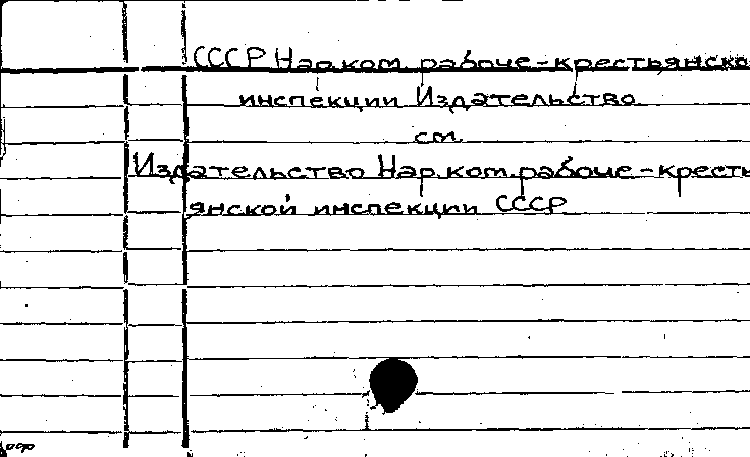 СССР Нар.ком. рабоче-крестьянско
инспекции Издательство
см.
Издательство Нар.ком.рабоче-кресть
янской инспекции СССР